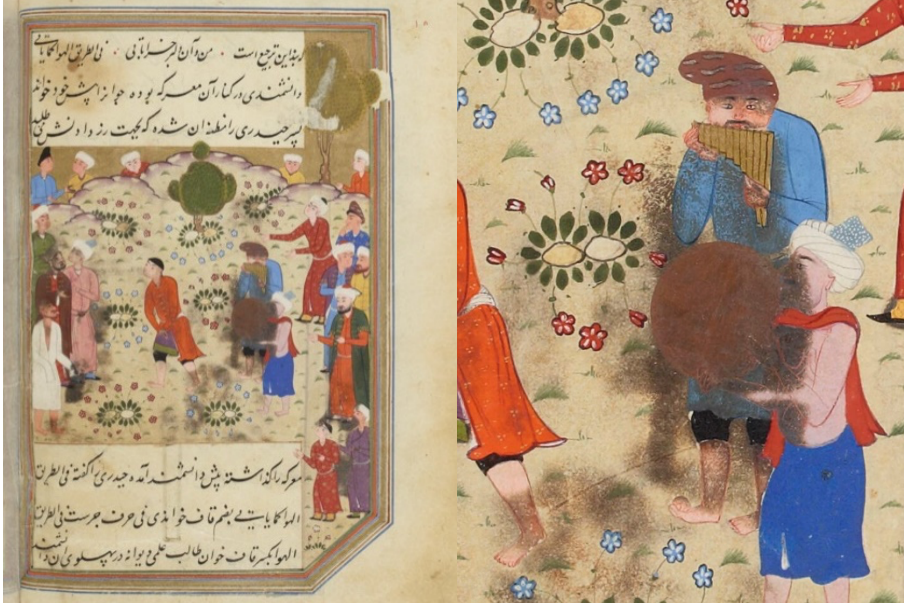 بدین ترجیع است من و آن دلبر خراباتی فی الطریق الهوا کمایاتی
دانشمندی در کنار آن معرکه بوده حیدر را پیش خود خواند
پسر حیدری را نطنه آن شده که بجهت زر دادنش طلبید
معرکه را گذاشته پیش دانشمند آمده حیدری را گفته فی الطریق
الهوا کمایاتی بضم قاف خواندی نمی حرف جرست فی الطریق
الهوا بکسر قاف خوان طالب علمی دیوانه در پهلوی آن